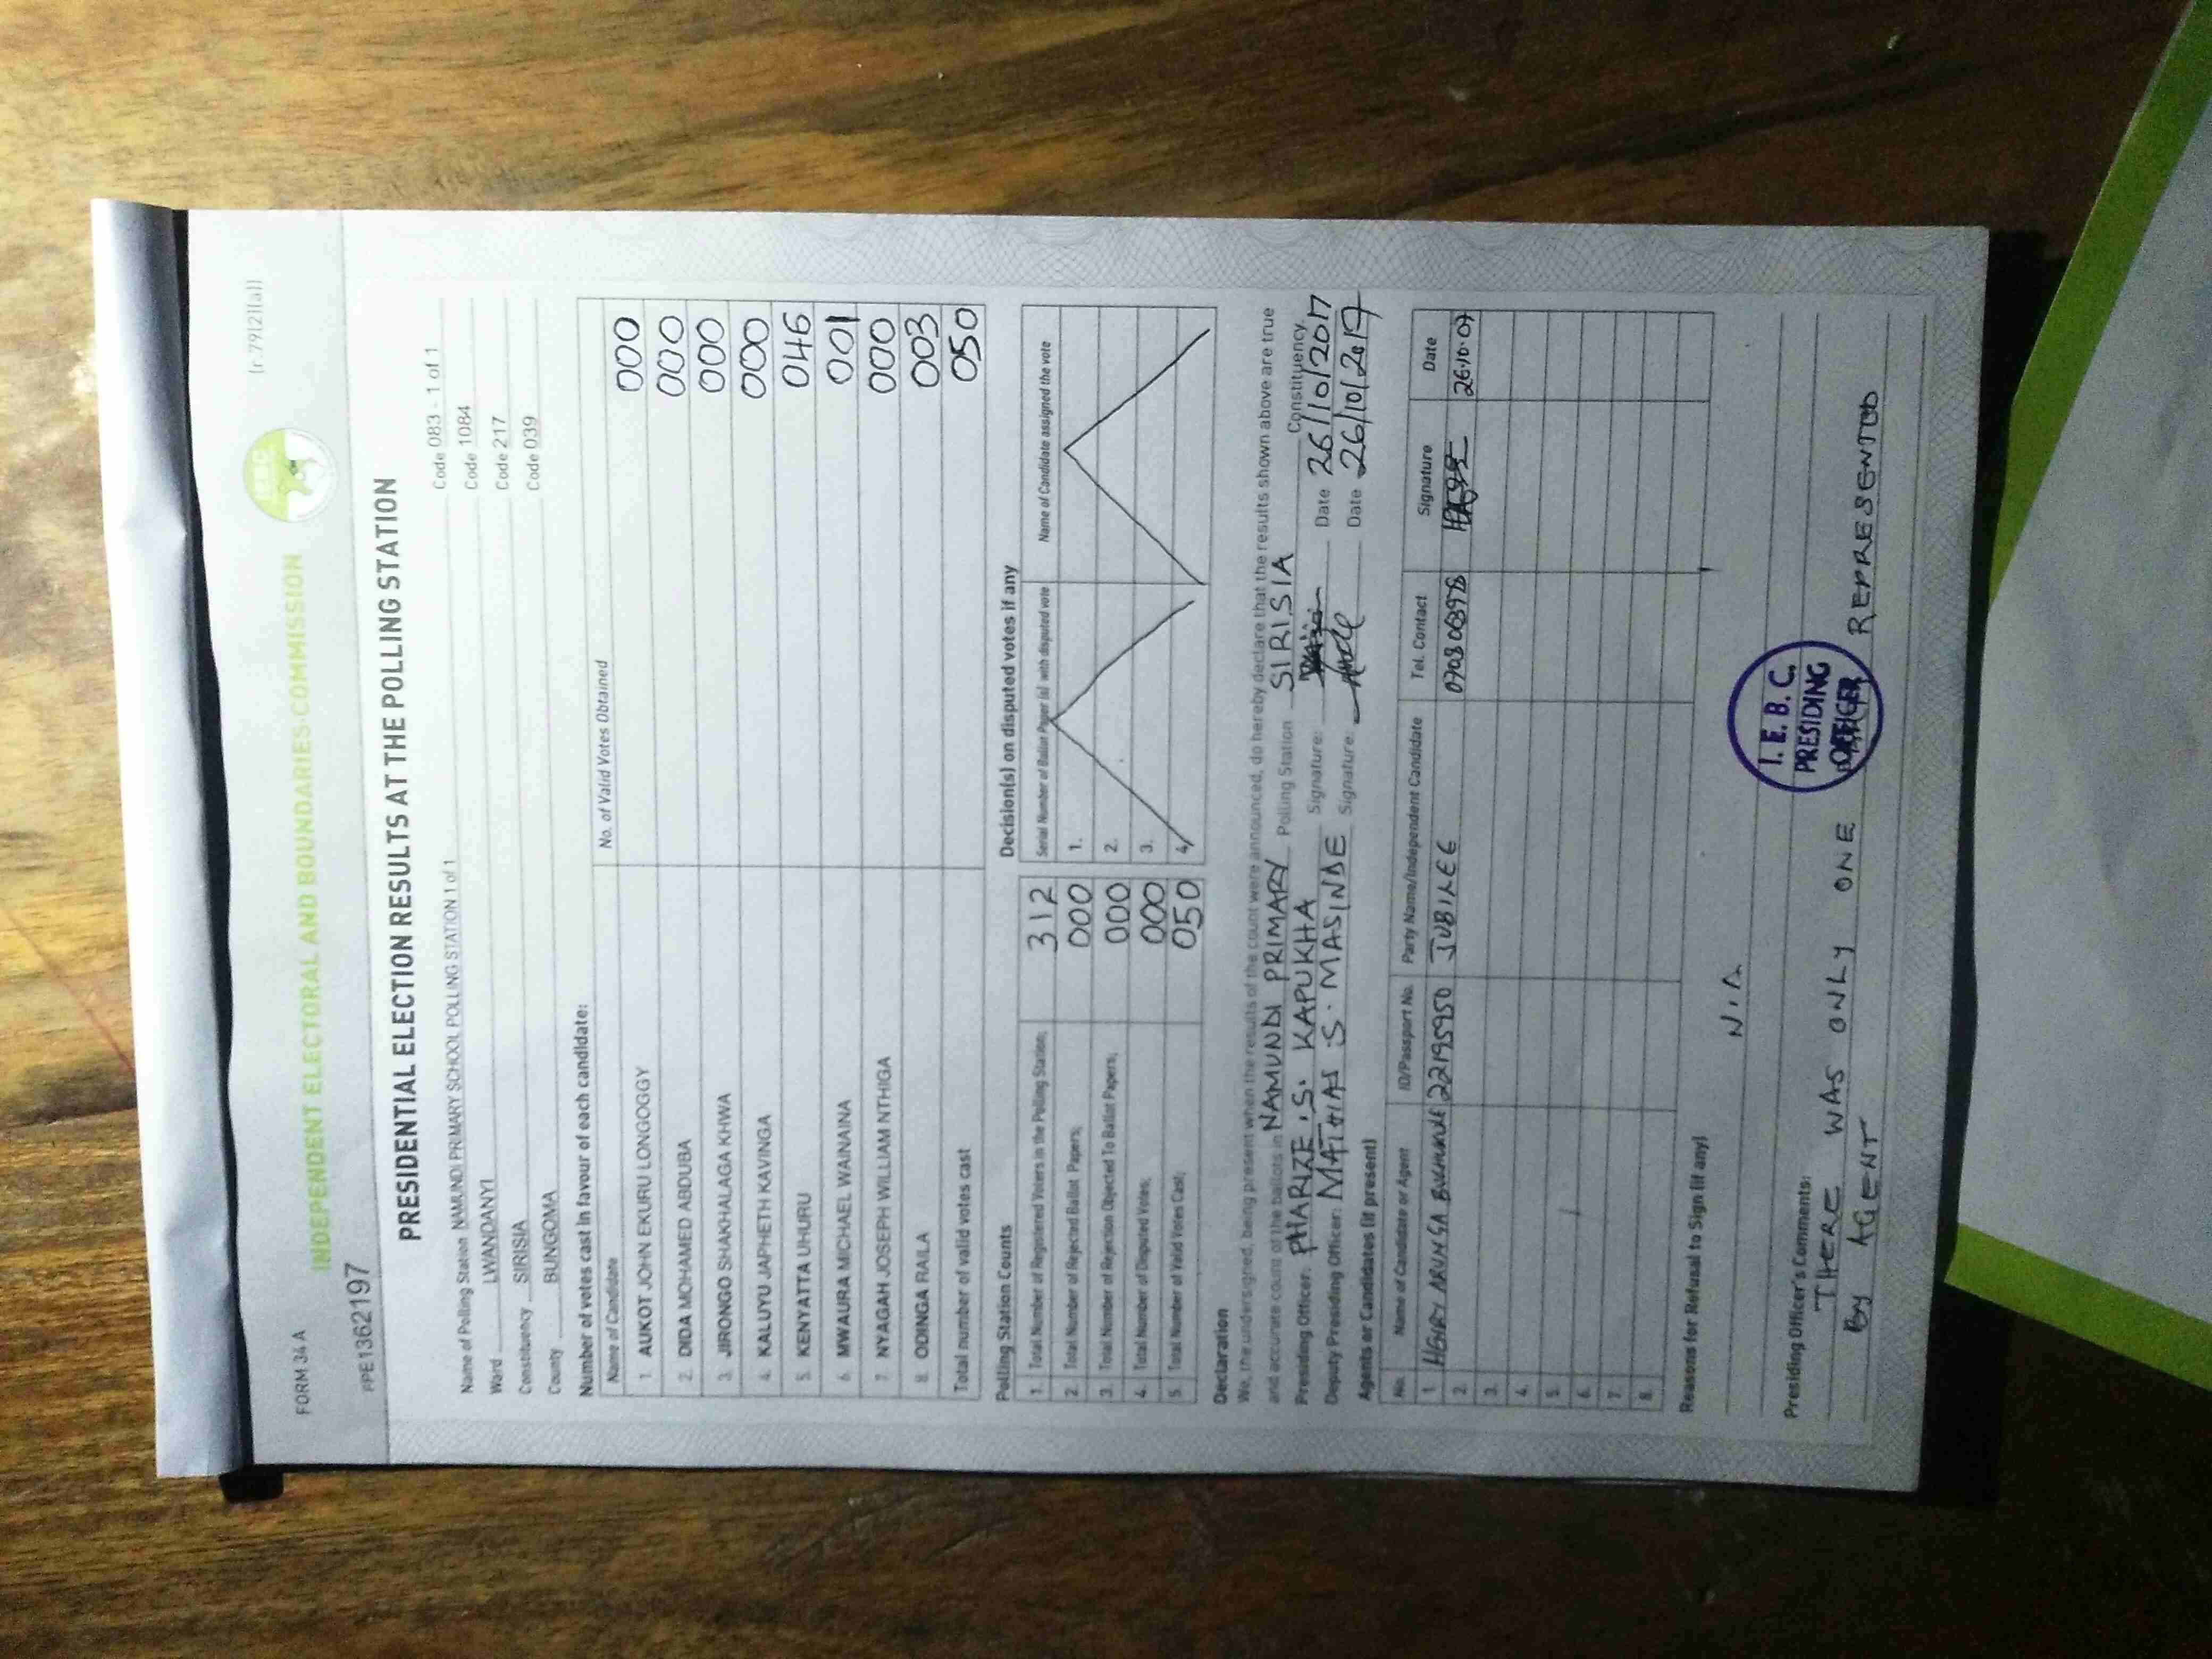 FORM 34A
(r.79(2)(a))
INDEPENDENT ELECTORAL AND BOUNDARIES COMMISSION
PRESIDENTIAL ELECTION RESULTS AT THE POLLING STATION
Name of Polling Station NAMUNDI PRIMARY SCHOOL POLLING STATION 1 of 1 Code 083 - 1 of 1
Ward LWANDANYI Code 1084
Constituency SIRISIA Code 217
County BUNGOMA Code 039
Number of votes cast in favour of each candidate:
Name of Candidate No. of Valid Votes Obtained
1. AUKOT JOHN EKURU LONGOGGY 000
2. DIDA MOHAMED ABDUBA 000
3. JIRONGO SHAKHALAGA KHWA 000
4. KALUYU JAPHETH KAVINGA 000
5. KENYATTA UHURU 046
6. MWAURA MICHAEL WAINAINA 001
7. NYAGAH JOSEPH WILLIAM NTHIGA 000
8. ODINGA RAILA 003
Total number of valid votes cast 050
Polling Station Counts
1. Total Number of Registered Voters in the Polling Station; 312
2. Total Number of Rejected Ballot Papers; 000
3. Total Number of Rejection Objected To Ballot Papers; 000
4. Total Number of Disputed Votes; 000
5. Total Number of Valid Votes Cast; 050
Decision(s) on disputed votes if any
Serial Number of Ballot Paper (s) with disputed vote Name of Candidate assigned the vote
1.
2.
3.
4.
Declaration
We, the undersigned, being present when the results of the count were announced, do hereby declare that the results shown above are true
and accurate count of the ballots in NAMUNDI PRIMARY Polling Station SIRISIA Constituency
Presiding Officer: PHARIZE S. KAPUKHA Signature: Date 26/10/2017
Deputy Presiding Officer: MATHIAS S. MASINDE Signature: Date 26/10/2017
Agents or Candidates (if present)
No. Name of Candidate or Agent ID/Passport No. Party Name/Independent Candidate Tel. Contact Signature Date
1. HENRY ARUNGA 22195950 JUBILEE 26.10.07
2.
3.
4.
5.
6.
7.
8.
Reasons for Refusal to Sign (if any)
N.A
I.E.B.C.
PRESIDING
OFFICER
Presiding Officer's Comments:
THERE WAS ONLY ONE REPRESENTED
BY AGENT